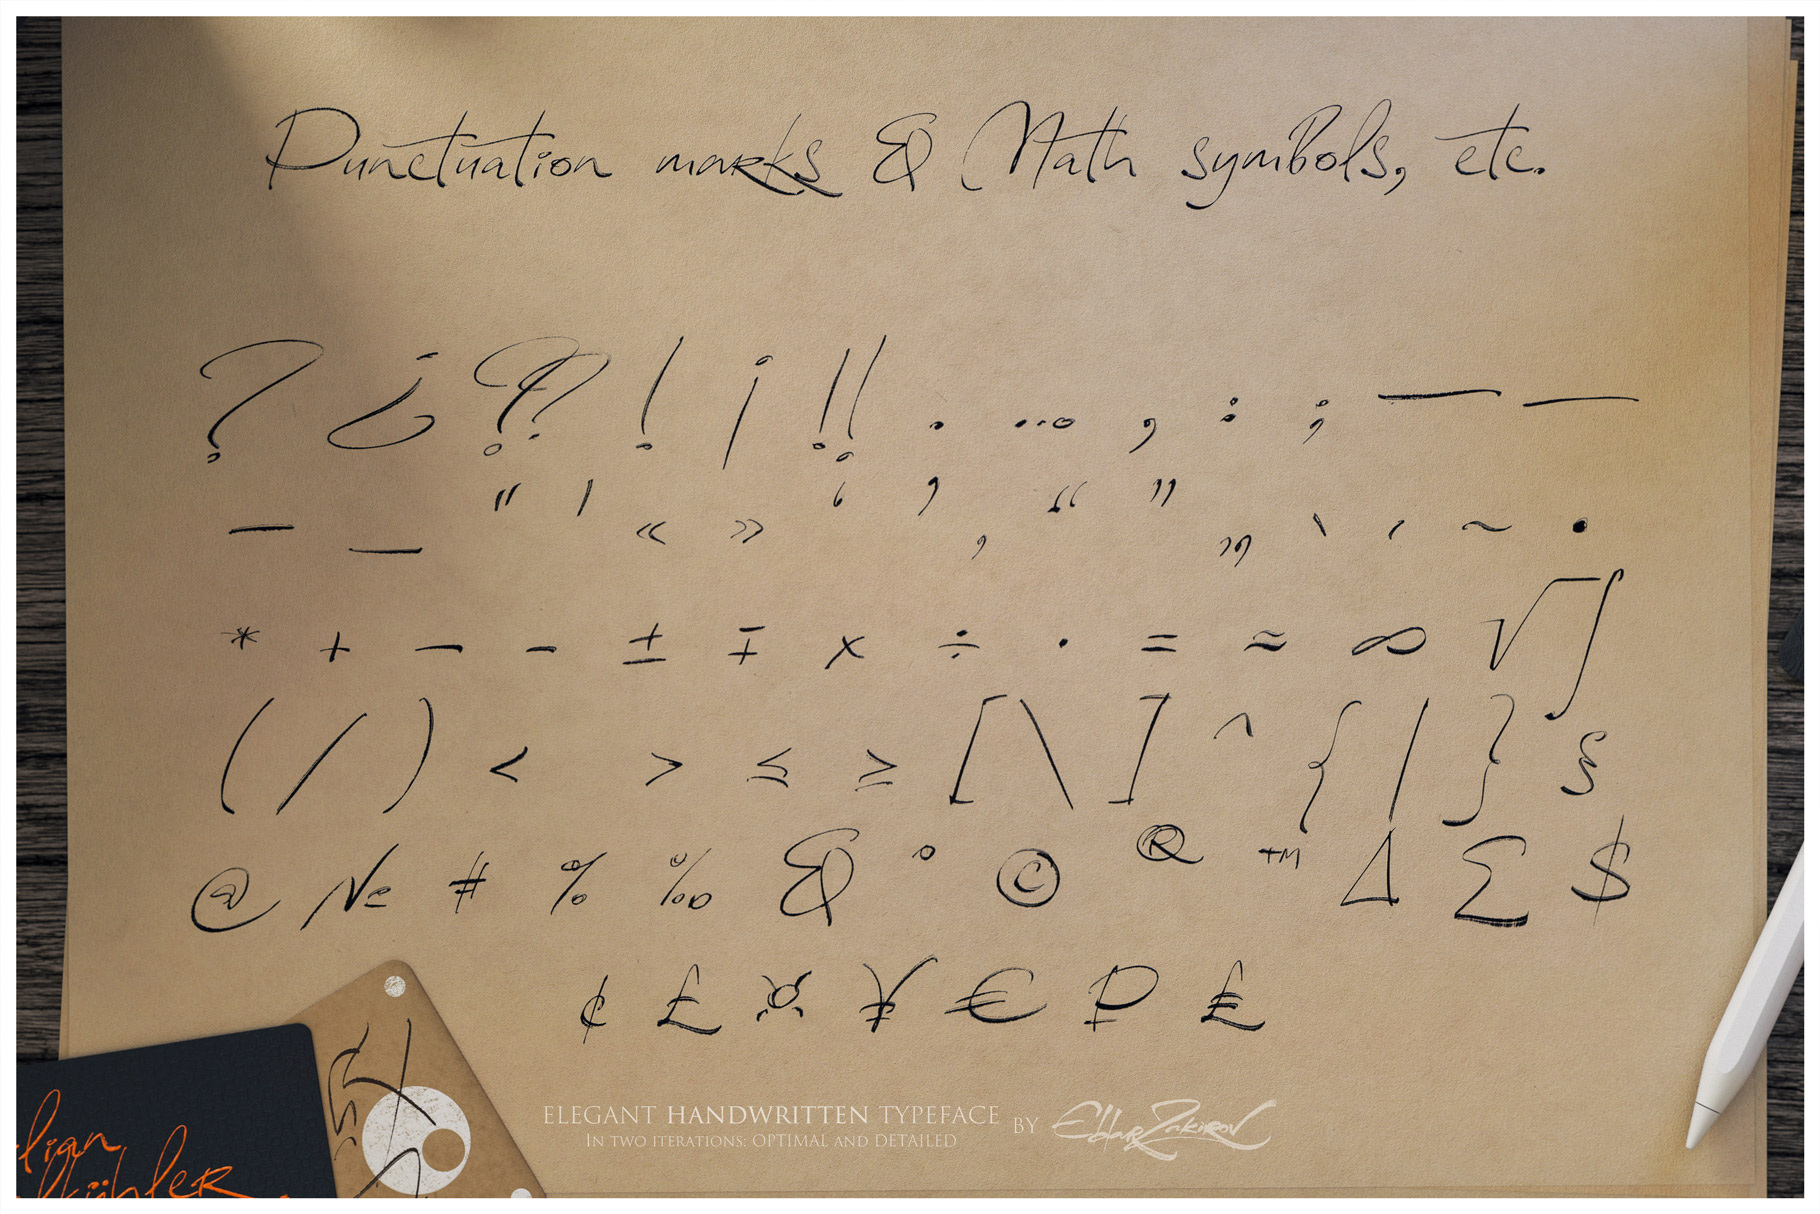 Punctuation marks & Math symbols, etc.
? ¿ ⁈ ! ¡ ‼ . … , : ; — –
- _ " ' « » ‘ ’ ‚ “ ” „ ` ´ ~ •
* + − - ± ∓ × ÷ · = ≈ ∞ √ ∫
( / ) < > ≤ ≥ [ \ ] ^ { | } §
@ № # % ‰ & ° © ® ™ ∆ ∑ $
¢ £ ¤ ¥ € ₽ ₤
ELEGANT HANDWRITTEN TYPEFACE BY Eldar Zakirov
IN TWO ITERATIONS: OPTIMAL AND DETAILED